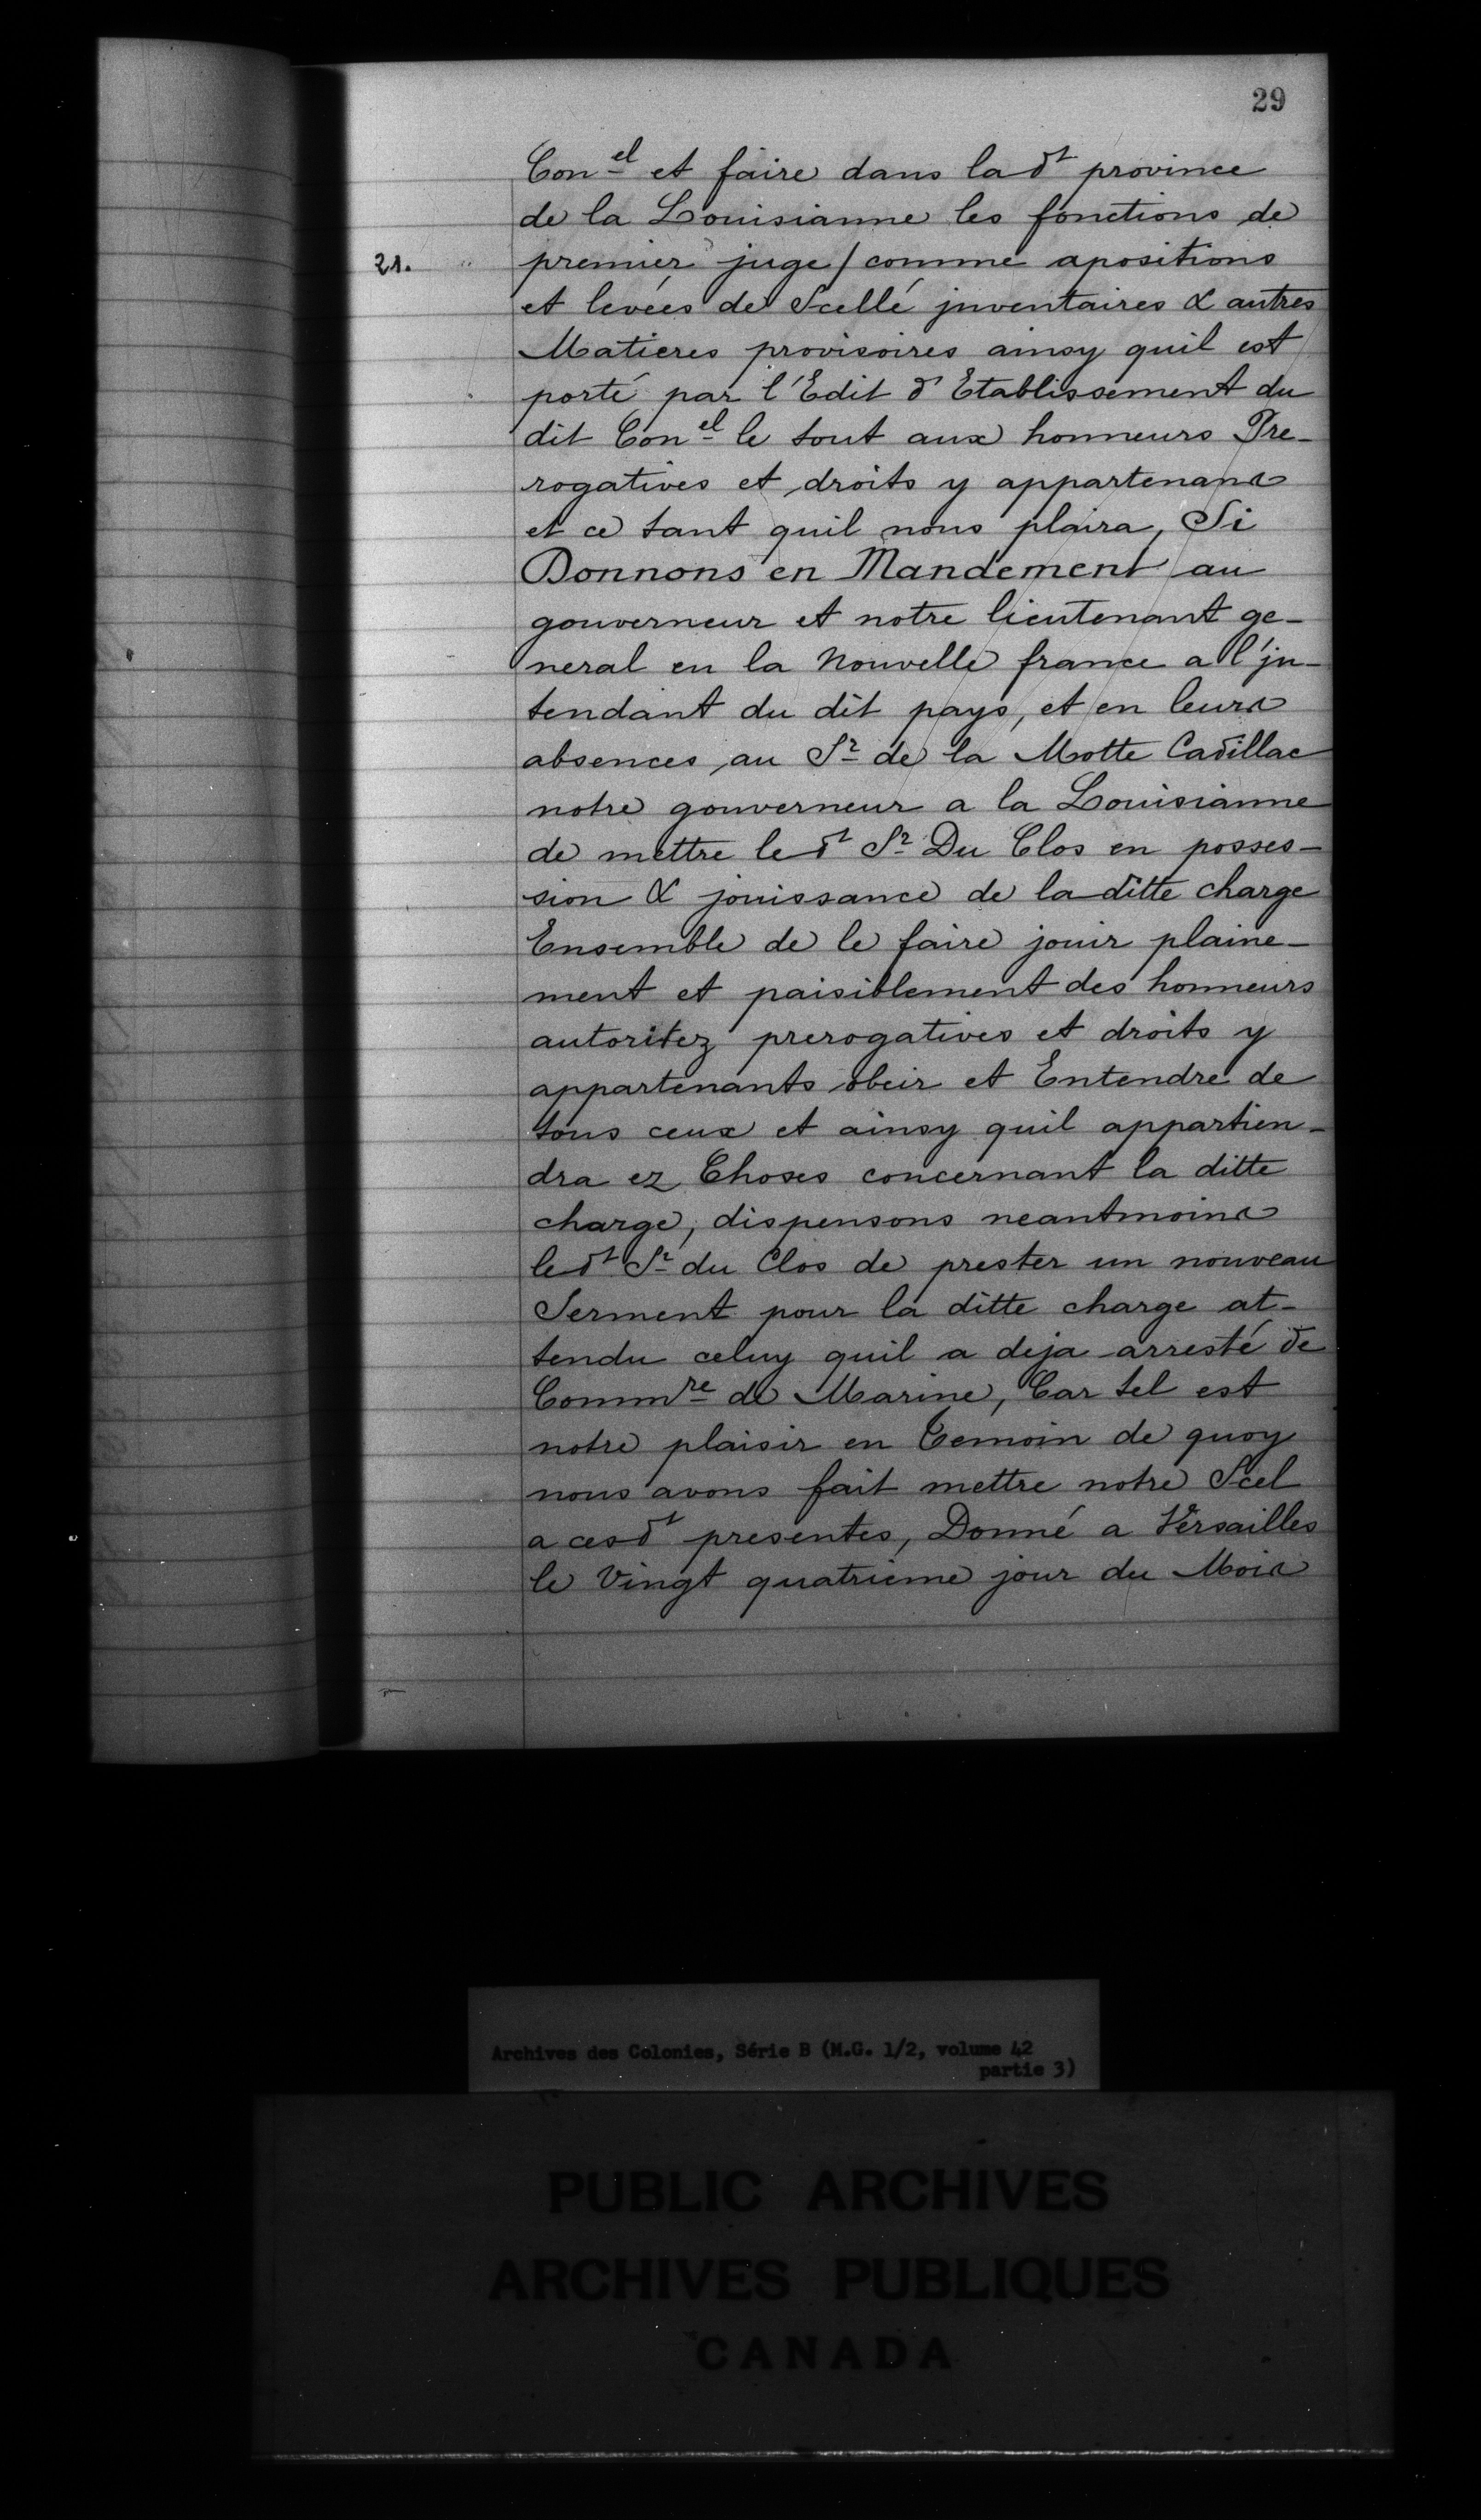 29
Con.el et faire dans lad.t province
de la Louisianne les fonctions de
21. premier juge / comme apositions
et levées de Scellé jnventaires & autres
Matieres provisoires ainsy quil est
porté par l'Edit d'Etablissement du
dit Con.el le tout aux honneurs Pre-
rogatives et droits y appartenans
et ce tant quil nous plaira, Si
Donnons en Mandement au
gouverneur et notre lieutenant ge-
neral en la Nouvelle france a l'jn-
tendant du dit pays, et en leurs
absences au S.r de la Motte Cadillac
notre gouverneur a la Louisianne
de mettre led.t S.r Du Clos en posses-
sion & jouissance de la ditte charge
Ensemble de le faire jouir plaine-
ment et paisiblement des honneurs
autoritez prerogatives et droits y
appartenants obeir et Entendre de
tous ceux et ainsy quil appartien-
dra ez Choses concernant la ditte
charge, dispensons neantmoins
led.t S.r du Clos de prester un nouveau
Serment pour la ditte charge at-
tendu celuy quil a deja arresté de
Comm.re de Marine, Car tel est
notre plaisir en Temoin de quoy
nous avons fait mettre notre Scel
a cesd.t presentes, Donné a Versailles
le Vingt quatrieme jour du Mois
Archives des Colonies, Série B (M.G. 1/2, volume 42
partie 3)
PUBLIC ARCHIVES
ARCHIVES PUBLIQUES
CANADA